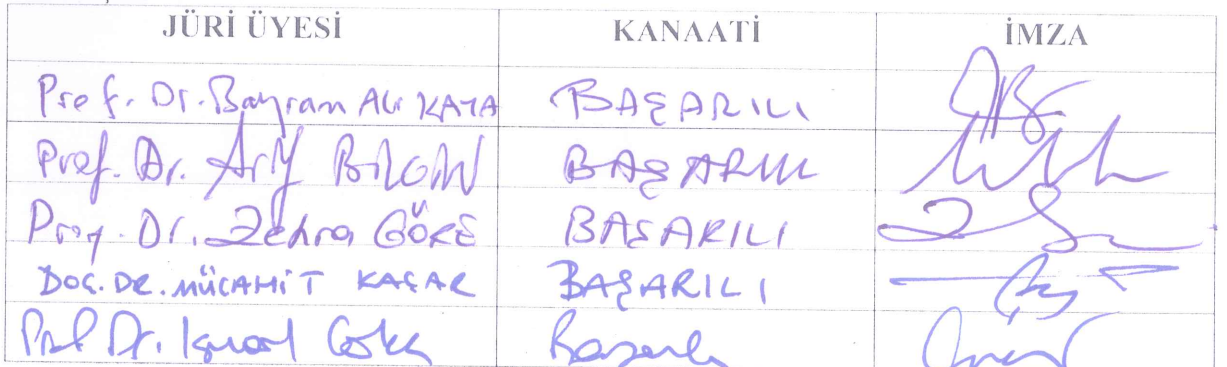 JÜRİ ÜYESİ KANAATİ İMZA
Prof. Dr. Bayram Ali KAYA BAŞARILI
Prof. Dr. Arif BİLGİN BAŞARILI
Prof. Dr. Zehra GÖRE BAŞARILI
DOÇ. DR. MÜCAHİT KAÇAR BAŞARILI
Prof. Dr. Başarılı